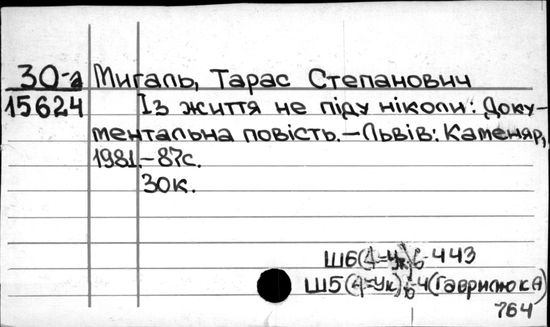 30-а Мигаль, Тарас Степанович
15624 Із життя не піду ніколи: Доку-
ментальна повість.–Львів: Каменяр,
1981.–87с.
30к.
Ш6(4=Ук)6-443
Ш5(4=Ук)6-4(Гаврилюк А)
764